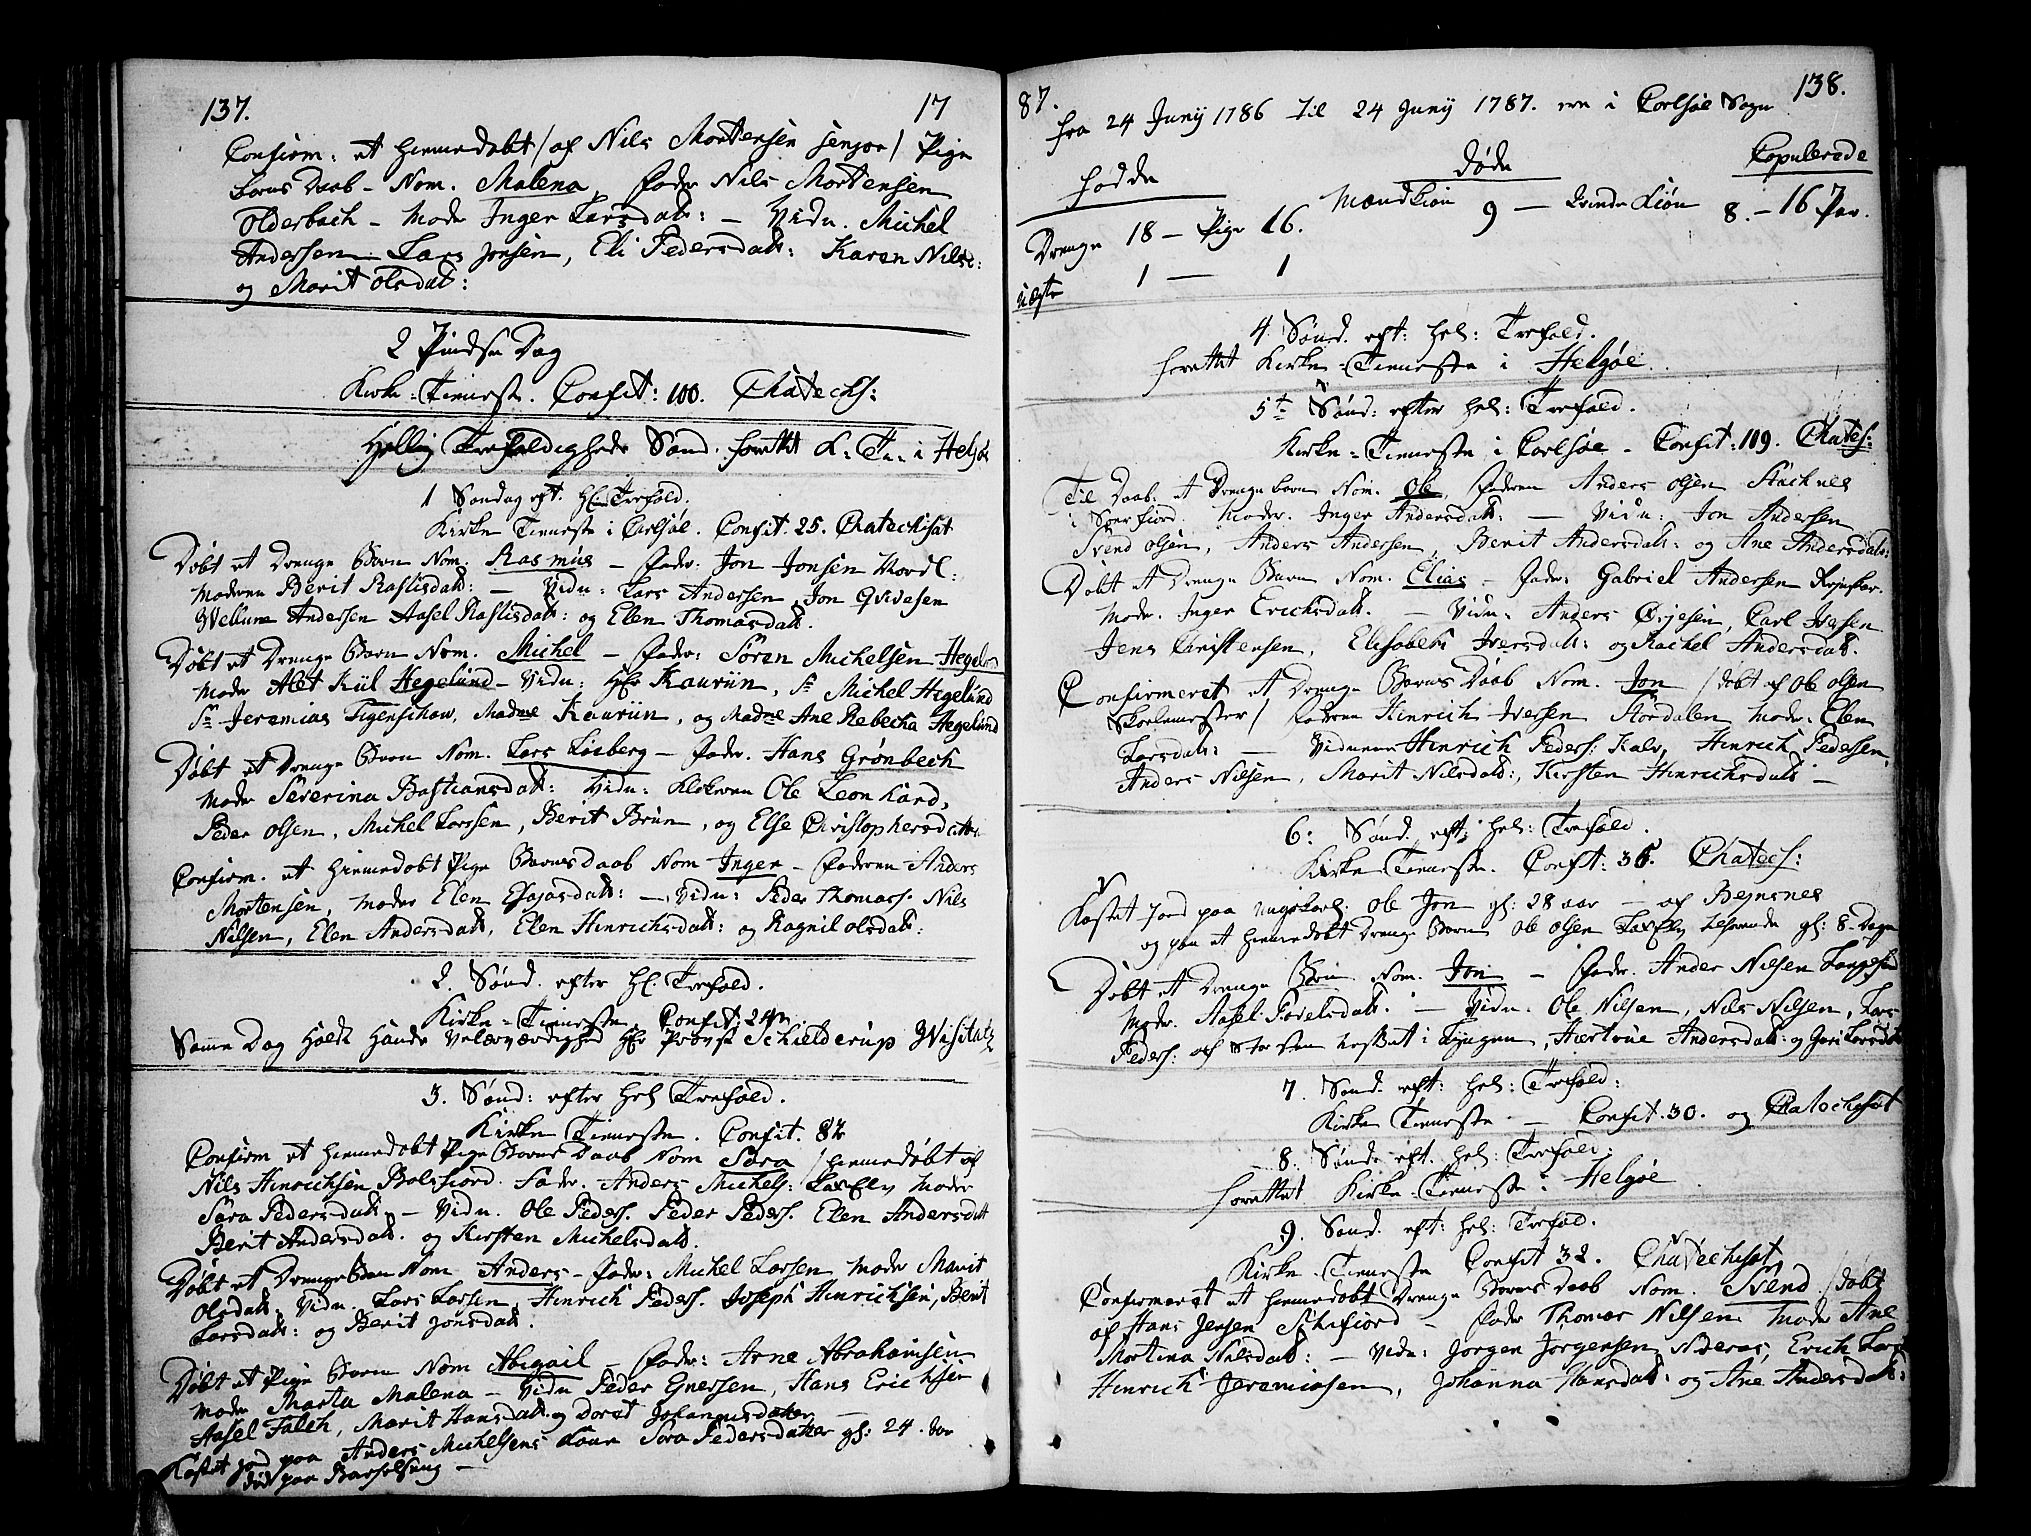 137. 17
Confirm: et hiemmedøbt / af Nils Mortensen senjor / Pige
barns Daab - Nom. Malena, Fader Nils Mortensen
Olderbach - Moder Inger Larsdatt: - Vidn. Michel
Andersen Lars Jonsen, Eli Pedersdatt: Karen Nilsd:
og Marit Olsdat:
2 Pindse Dag
Kirke-Tieneste. Confit: 100. Chatechs:
Hellig Trefoldigheds Sønd. forrettet K: Tn: i Helgøe
1 Søndag eft. Hl. Trefold.
Kirke Tieneste i Carlsøe. Confit. 25. Chatechisat
Døbt et Drenge Barn Nom. Rasmus - Fader: Jon Jonsen
Moderen Berit Raslisdatt: - Vidn: Lars Andersen Jon
Andersen Aasel Raslisdatt: og Elen Thomasdatt.
Døbt et Drenge Barn Nom. Michel - Fader: Sören Michelsen Hegelund
Moder Alet Kiil Hegelund - Vidn: Hr Kauriin, Sr Michel Hegelund
Sr Jeremias Figenschow, Madme Kauriin, og Madme Ane Rebecha Hegelund
Døbt et Drenge Barn Nom. Lars Losberg - Fader. Hans Grønbech
Moder Severina Bastiansdatt: Vidn: Klokeren Ole Leonhard,
Peder Olsen, Michel Larsen, Berit Brun, og Else Christophersdatter
Confirm. et hiemmedøbt Pige Barnes daab Nom Inger - Faderen Anders
Mortensen, Moder Elen Esajasdatt: - Vidn: Peder Thomass. Nils
Nilsen, Elen Andersdatt, Elen Hinrichsdatt: og Ragnil Olsdatt:
2. Sønd. efter Hl. Trefold.
Kirke-Tieneste Confit: 24
Samme Dag Holdt Hands Velærværdighed Hr Provst Schielderup Visitatz
3. Sønd: efter Hel Trefold.
Kirke Tieneste. Confit. 82
Confirm et hiemmedøbt Pige Barns Daab Nom Sara / hiemmedøbt af
Nils Hinrichsen Balsfiord. Fader. Anders Michels: Laxelv Moder
Sara Pedersdatt, - Vidn. Ole Peders. Peder Peders. Elen Andersdatt
Berit Andersdatt. og Kirsten Michelsdatt.
Døbt et Drenge Barn Nom Anders - Fader: Michel Larsen Moder Marit
Olsdatt, Vidn Lars Larsen Hinrich Peders. Joseph Hinrichsen, Berit
Larsdatt: og Berit Jonsdatt.
Døbt et Pige Barn Nom Abigail - Fader: Arne Abrahamsen
Moder Marta Malena - Vidn Peder Enersen, Hans Erichsen
Aasel Falch, Marit Hansdatt og Doret Johannesdatter
Kastet Jord paa Anders Michelsens Kone Sara Pedersdatter gl: 24 Aar
død paa Barselseng -
87. 138.
fra 24 Junij 1786 til 24 Junij 1787. ere i Carlsøe Sogn
fødde Døde Copulerede
Drenge 18 - Pige 16. Mandkiøn 9 - Qvinde Kiøn 8. - 16 Par.
uægte 1 - 1
4. Sønd. eft: Hel: Trefold.
forrettet Kirke-Tieneste i Helgøe.
5te Sønd: efter Hel: Trefold.
Kirke-Tieneste i Carlsøe - Confit: 109. Chatec:
Til Daab: et Drenge barn Nom. Ole, Faderen Anders Olsen Stachnes
i Sørfiord. Moder. Inger Andersdatt: - Vidn: Jon Andersen
Svend Olsen, Anders Andersen, Berit Andersdatt: og Ane Andersdatt:
Døbt et Drenge Barn Nom. Elias - Fader: Gabriel Andersen
Moder. Inger Erichsdatt. - Vidn: Anders Ørjesen, Carl Iversen
Jens Christensen, Elisabeth Iversdatt: og Rachel Andersdatt.
Confirmeret et Drenge Barns Daab Nom. Jon / døbt af Ole Olsen
Skolemester / Faderen Hinrich Iversen Stordalen Moder: Elen
Larsdatt: - Vidnerne Hinrich Peders: Kalv, Hinrich Pedersen,
Anders Nilsen, Marit Nilsdatt:, Kirsten Hinrichsdatt -
6: Sønd. eft: Hel: Trefold.
Kirke Tieneste. Confit: 36. Chatech:
Kastet Jord paa ungkarl. Ole Jon gl: 28 aar - af Bejnsnes
og paa et hiemmedøbt Drenge Barn Ole Olsen Laxelv gl: 8 Dage
Døbt et Drenge Barn Nom. Jon - Fader. Ander Nilsen Langesund
Moder. Aasel Povelsdatt. - Vidn: Ole Nilsen, Nils Nilsen, Lars
Peders: af i Lyngen, Andersdatt: og Guri Larsdatt
7. Sønd. eft: Hel: Trefold:
Kirke Tieneste - Confit. 30. og Catechisat
8. Sønd: eft. Hel: Trefold:
forrettet Kirke-Tieneste i Helgøe
9. Sønd. eft: Hel: Trefold.
Kirke-Tieneste Confit 32. Chatechisat
Confirmeret et hiemmedøbt Drenge Barns Daab Nom. Svend / døbt
af Hans Jensen - Fader Thomas Nilsen Moder Ane
Martina Nilsdatt: - Vidn: Jørgen Jørgensen Erich Lars
Hinrich Jeremiasen, Johanna Hansdatt: og Ane Andersdatt: